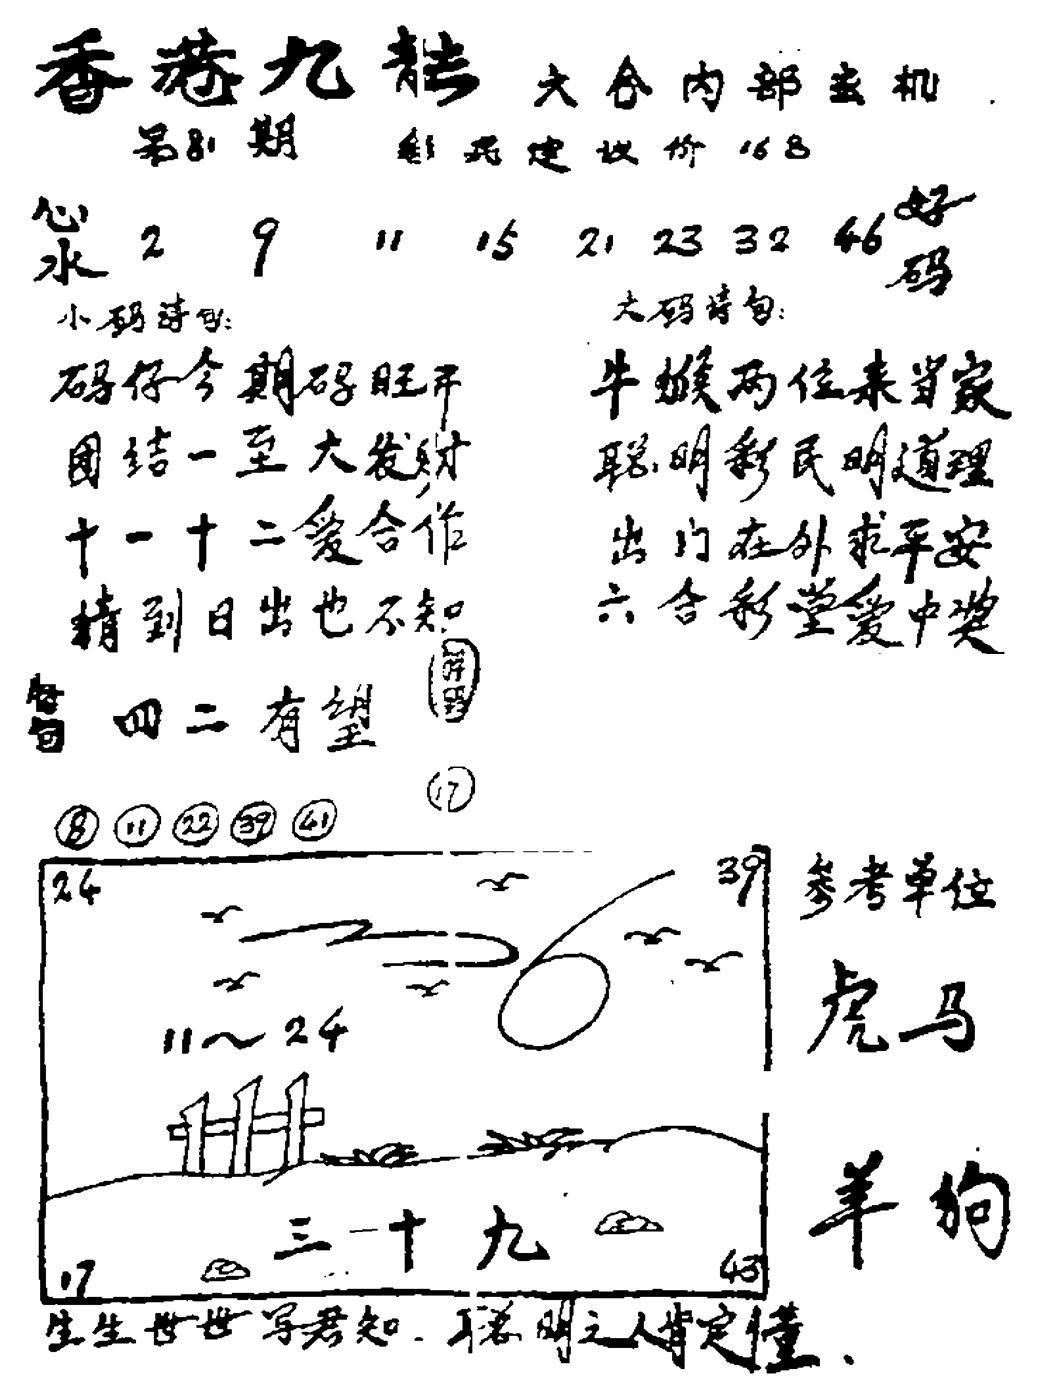 香港九龍 六合内部玄机
第81期 彩民建议价168
心水 2 9 11 15 21 23 32 46 好码
小码诗句: 大码诗句:
码仔今期码旺开
团结一至大发财
十一十二爱合作
猜到日出也不知
牛猴两位来当家
聪明彩民明道理
出门在外求平安
六合彩堂爱中奖
好句 四二有望
17
8 11 22 39 41
24 39
11～24
三十九
17 43
参考单位
虎马
羊狗
生生世世写君知.聪明之人肯定懂.